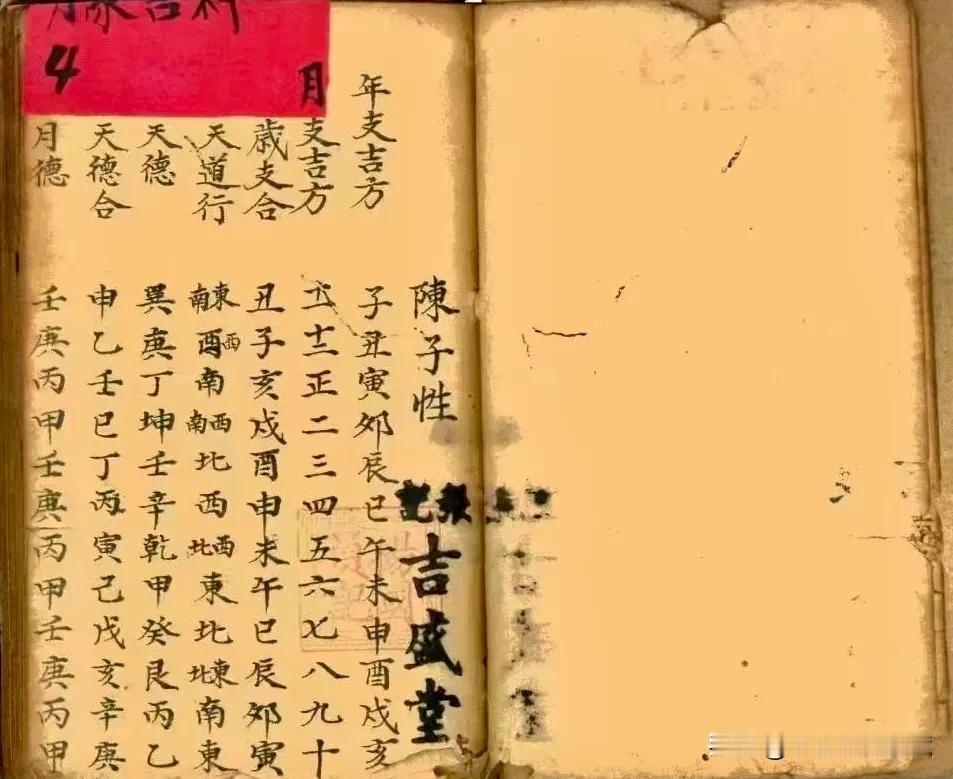 4
陳子性 吉盛堂
年支吉方 子丑寅卯辰巳午未申酉戌亥
月支吉方 十一十二正二三四五六七八九十
歲支合 丑子亥戌酉申未午巳辰卯寅
天道行 東南酉西南西南北西西北東北東北南東
天德 巽庚丁坤壬辛乾甲癸艮丙乙
天德合 申乙壬巳丁丙寅己戊亥辛庚
月德 壬庚丙甲壬庚丙甲壬庚丙甲